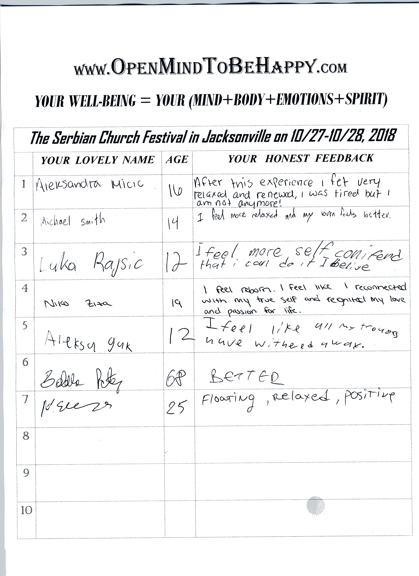 www.OpenMindToBeHappy.com
YOUR WELL-BEING = YOUR (MIND+BODY+EMOTIONS+SPIRIT)
The Serbian Church Festival in Jacksonville on 10/27-10/28, 2018
YOUR LOVELY NAME AGE YOUR HONEST FEEDBACK
1 Aleksandra Micic 16 After this experience I felt very
relaxed and renewed, I was tired but I
am not anymore!
2 Michael Smith 14 I feel more relaxed and my feels better.
3 Luka Rajsic 12 I feel more self
that i can do it I belive
4 Niko 19 I feel reborn. I feel like I reconnected
with my true self and my love
and passion for life.
5 Aleksa 12 I feel like all my
have withered away.
6 68 BETTER
7 25 Floating, relaxed, positive
8
9
10